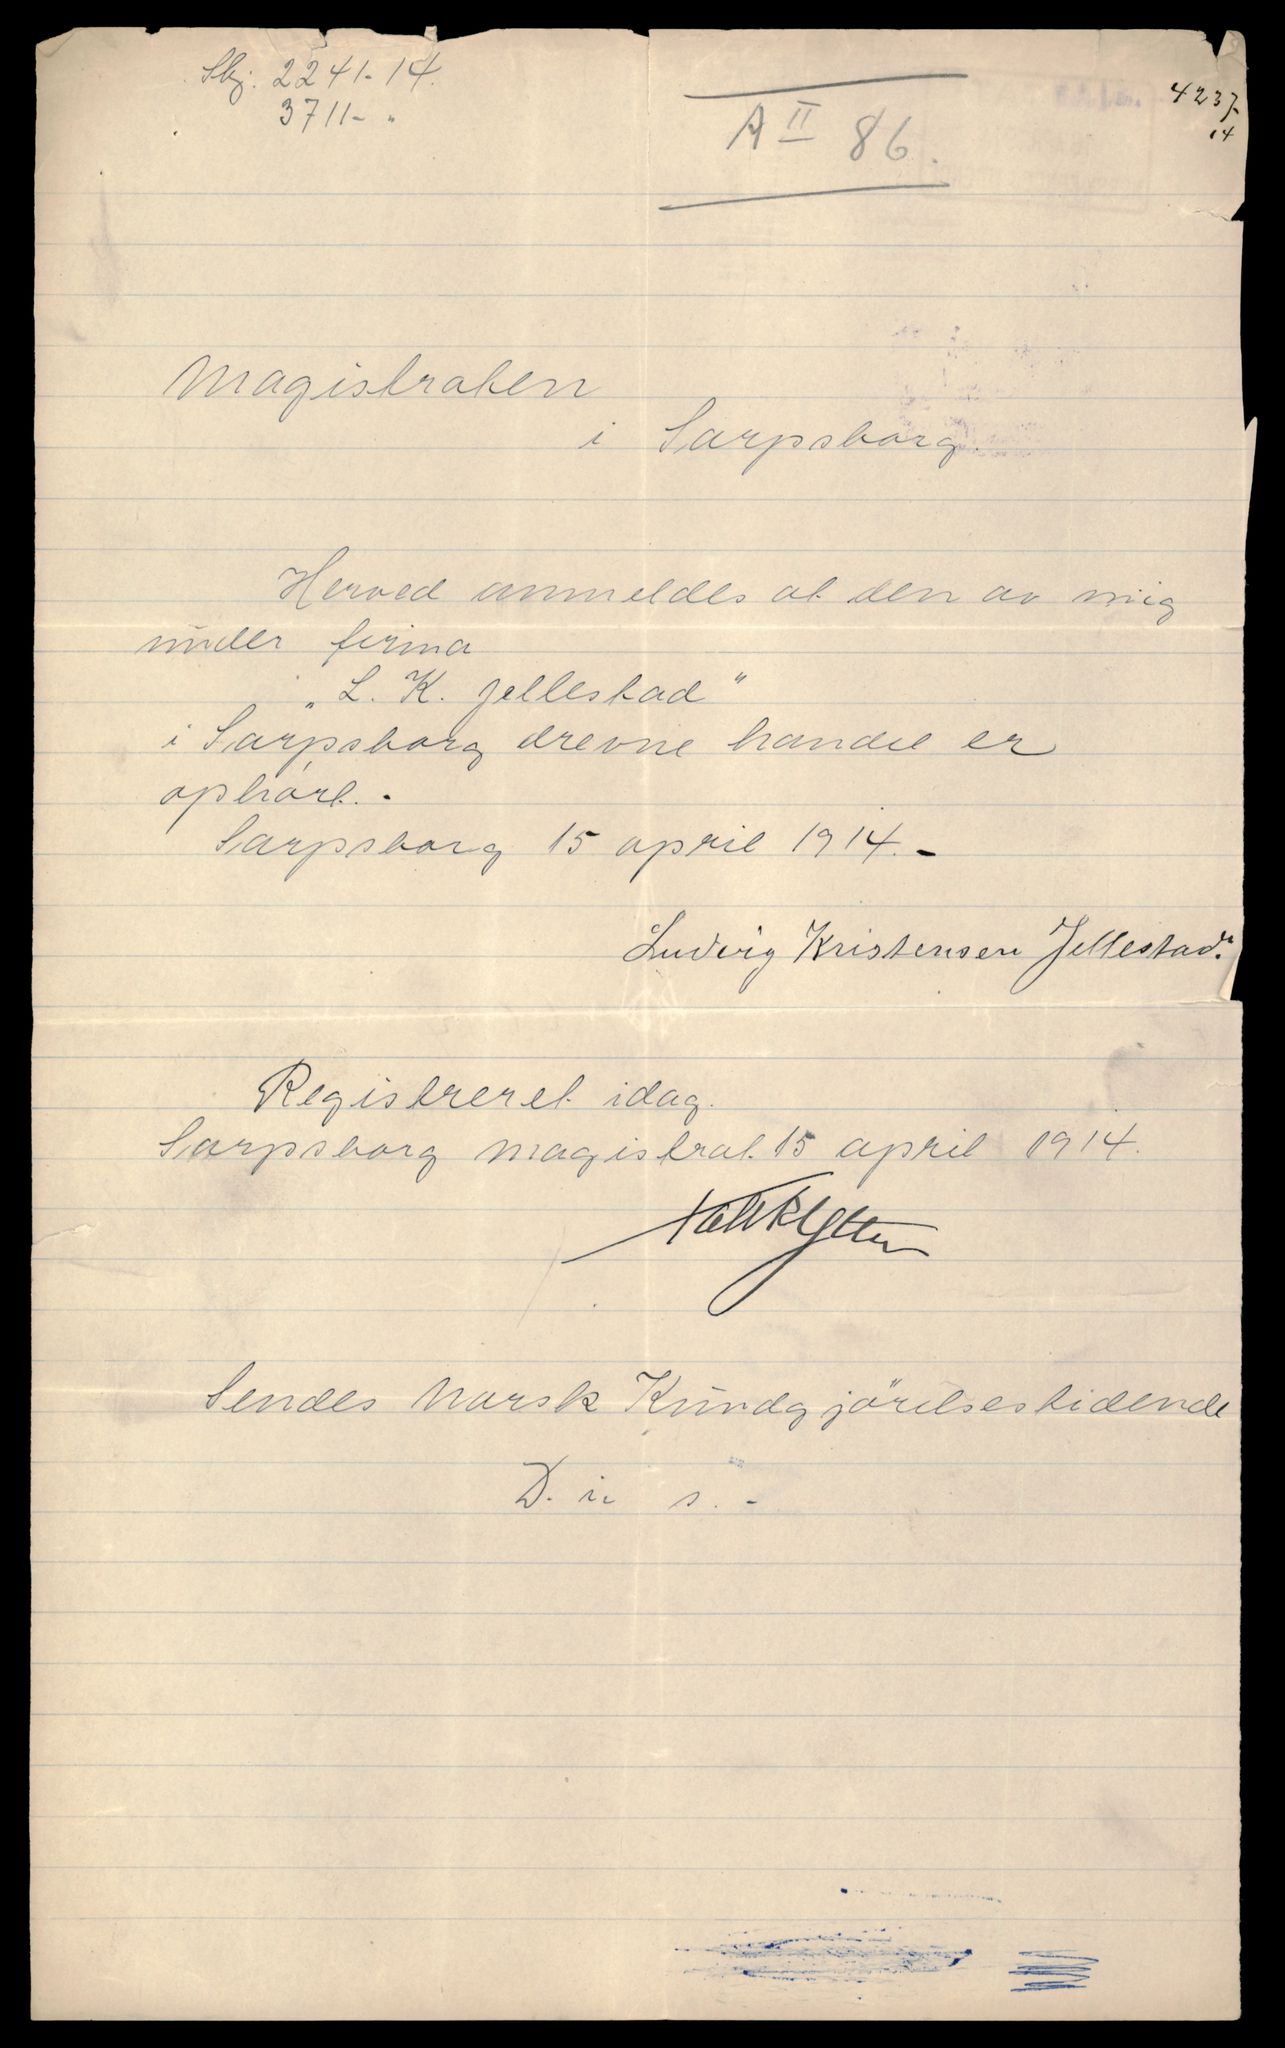 Skj. 2241-14.
3711- "
A II 86.
4237-
14
Magistraten
i Sarpsborg.
Herved anmeldes at den av mig
under firma
"L. K. Jellestad"
i Sarpsborg drevne handel er
ophørt.-
Sarpsborg 15 april 1914.-
Ludvig Kristensen Jellestad.
Registreret idag.
Sarpsborg magistrat 15 april 1914.
Sendes Norsk Kundgjörelsestidende
D. u. s.-